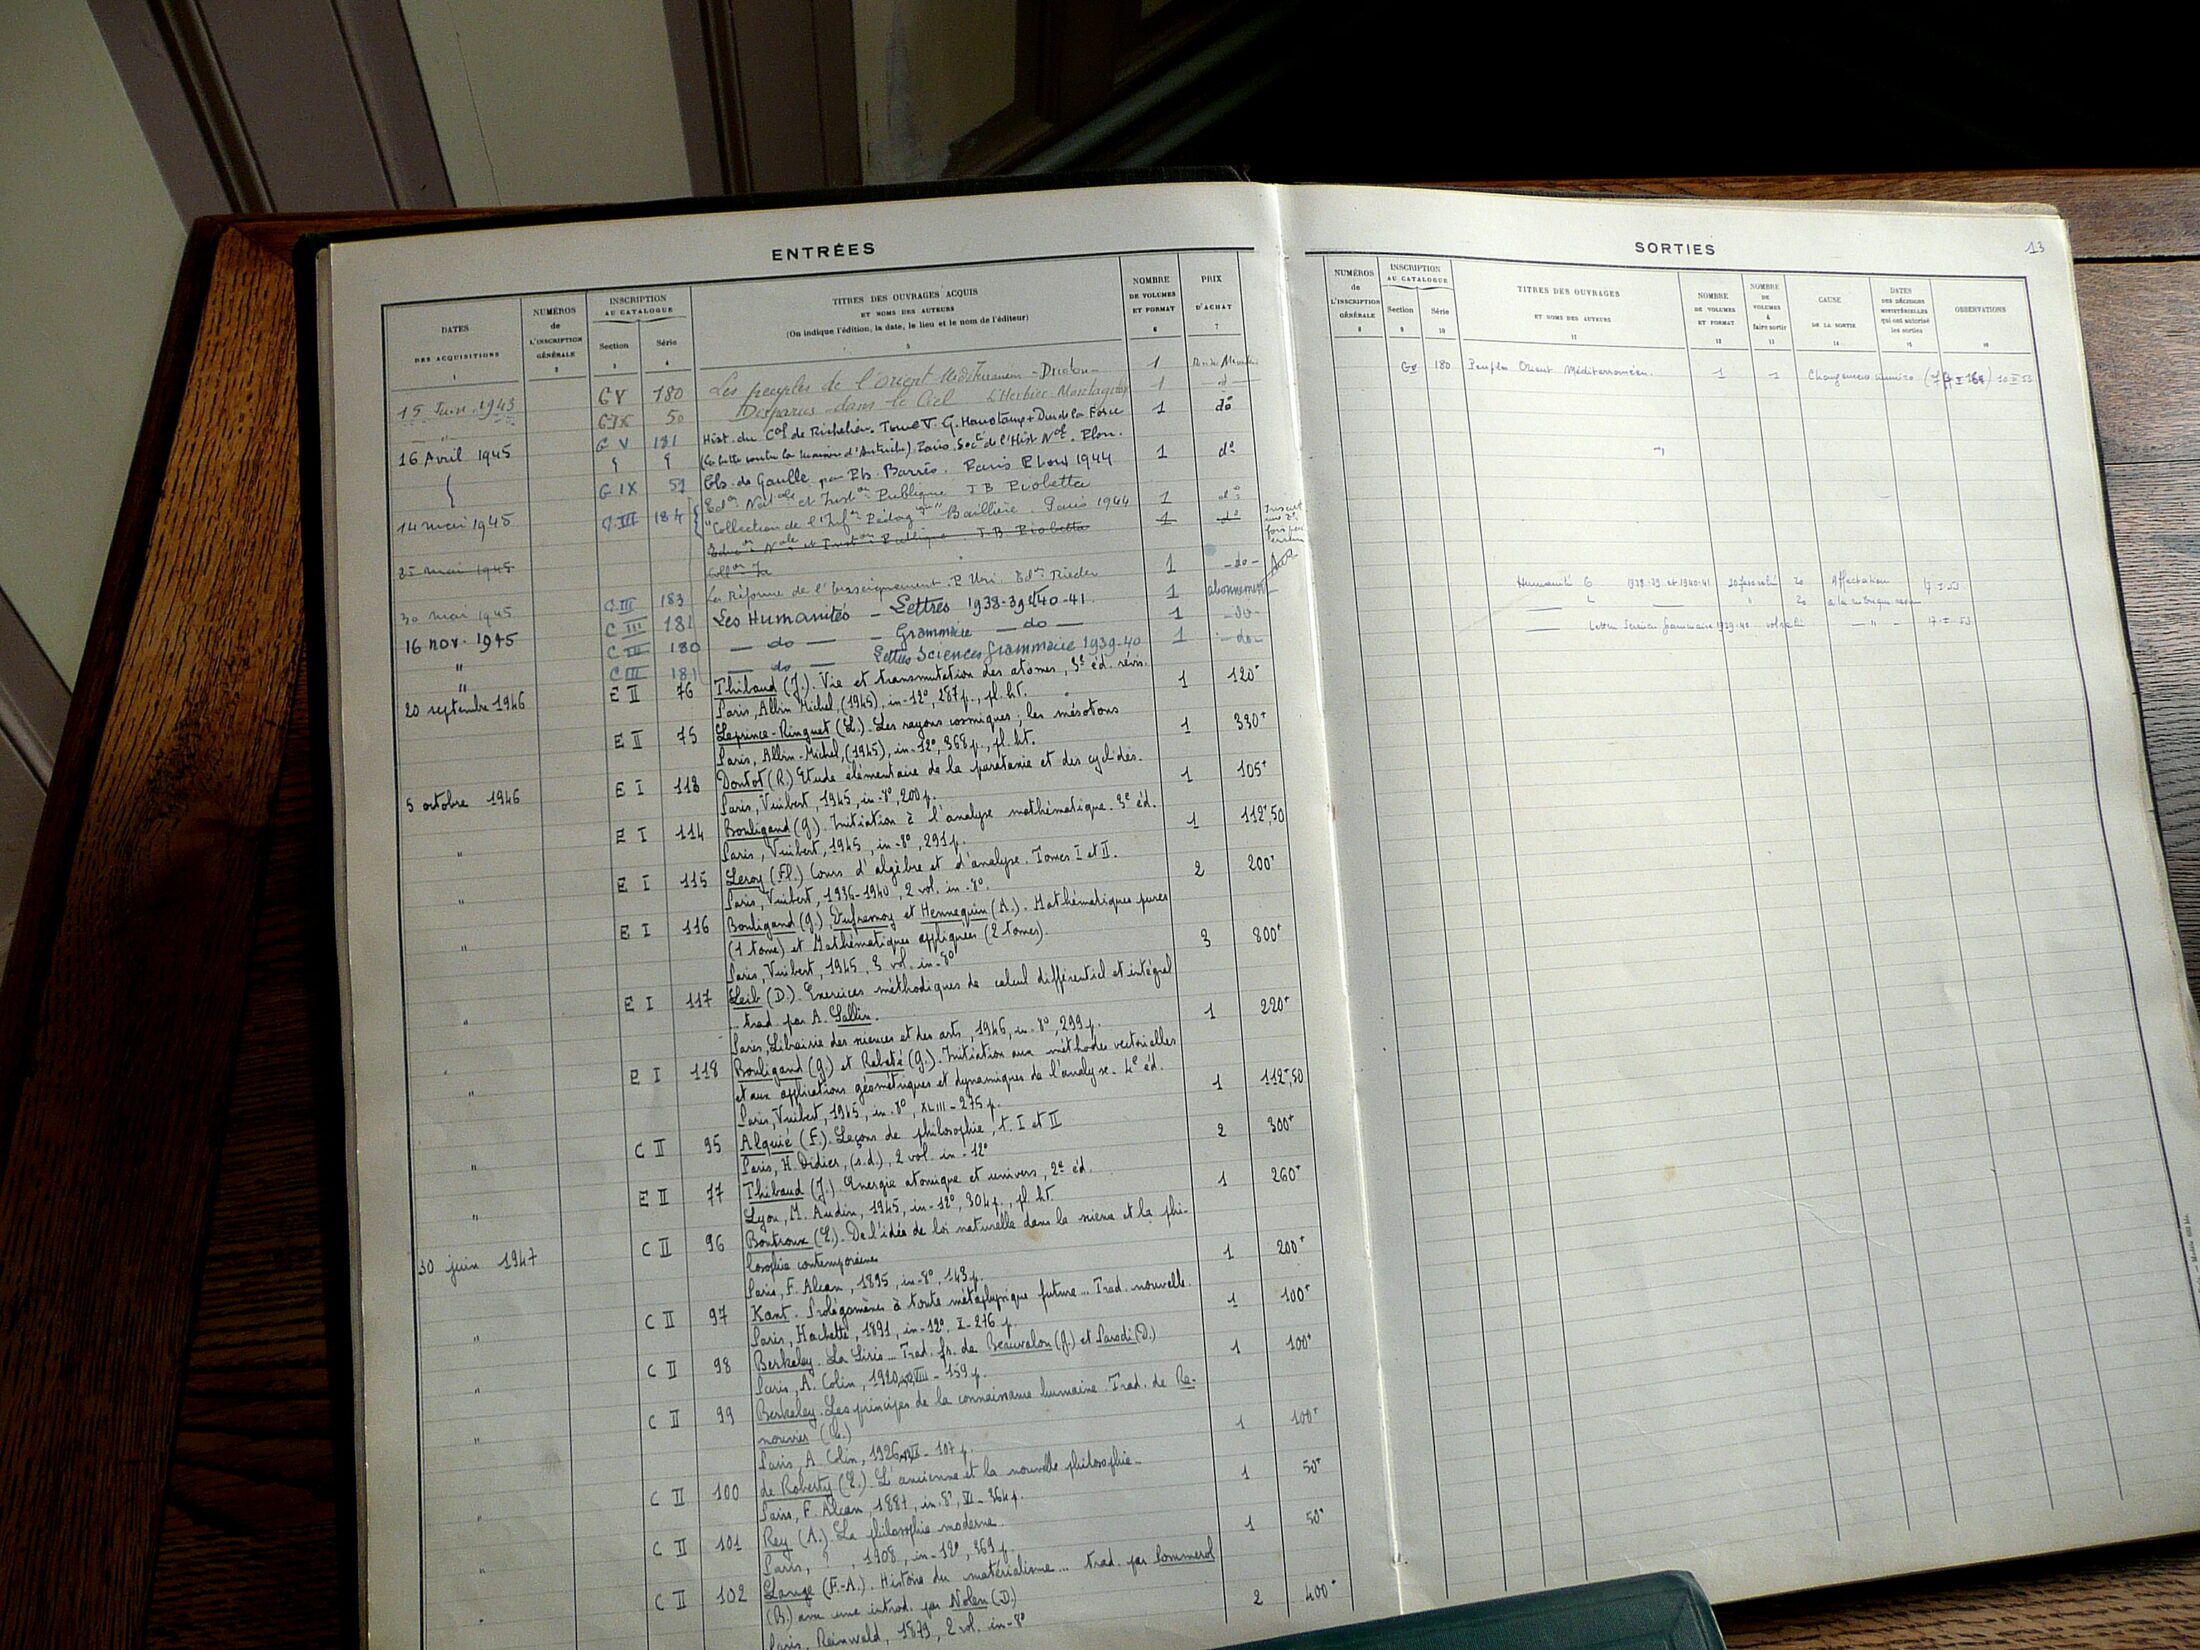 ENTRÉES
DATES DES ACQUISITIONS
NUMÉROS de L'INSCRIPTION GÉNÉRALE
INSCRIPTION AU CATALOGUE
Section
Série
TITRES DES OUVRAGES ACQUIS
ET NOMS DES AUTEURS
(On indique l'édition, la date, le lieu et le nom de l'éditeur)
NOMBRE DE VOLUMES ET FORMAT
PRIX D'ACHAT
1 2 3 4 5 6 7
15 Juin 1943 G V 180 Les peuples de l'Orient Méditerranéen - Drioton - 1
G IX 50 Disparus dans le Ciel. L'Herbier Montagnon 1 - d -
16 Avril 1945 G V 181 Hist. du Cal de Richelieu. Tome V. G. Hanotaux + Duc de la Force 1 do
(la lutte contre la maison d'Autriche). Paris. Soc. de l'Hist. Nale. Plon.
G IX 51 Ch. de Gaulle par Ph. Barrès. Paris Plon 1944 1 do
14 mai 1945 C III 184 Edon Natale et Inston Publique J B Piobetta 1 do
"Collection de l'Infon Pédagogique" Baillière. Paris 1944
25 mai 1945 Educon Nale et Inston Publique J B Piobetta 1 do
30 mai 1945 C III 183 La Réforme de l'Enseignement. P. Uri. Edon Rieder 1 - do -
16 nov. 1945 C III 182 Les Humanités - Lettres 1938-39 et 40-41. 1 abonnement
" C III 180 - do - - Grammaire - do - 1 - do -
" C III 181 - do - Lettres Sciences Grammaire 1939-40 1 - do -
20 septembre 1946 E II 76 Thibaud (J.). Vie et transmutation des atomes, 3e éd. rév. 1 120+
Paris, Albin Michel, (1945), in-12°, 287 p., pl. ht.
E II 75 Leprince-Ringuet (L.). Les rayons cosmiques ; les mésotons 1 330+
Paris, Albin-Michel, (1945), in-12°, 368 p., pl. ht.
5 octobre 1946 E I 113 Dontot (R.) Etude élémentaire de la parataxie et des cyclides. 1 105+
Paris, Vuibert, 1945, in-8°, 200 p.
" E I 114 Bouligand (G.). Initiation à l'analyse mathématique. 3e éd. 1 112+,50
Paris, Vuibert, 1945, in-8°, 291 p.
" E I 115 Leroy (Fl.) Cours d'algèbre et d'analyse. Tomes I et II. 2 200+
Paris, Vuibert, 1936-1940, 2 vol. in-8°.
" E I 116 Bouligand (G.), Dufresnoy et Hennequin (A.). Mathématiques pures
(1 tome) et Mathématiques appliquées (2 tomes). 3 800+
Paris, Vuibert, 1945, 3 vol. in-8°
" E I 117 Leib (D.). Exercices méthodiques de calcul différentiel et intégral
... trad. par A. Sallin. 1 220+
Paris, Librairie des sciences et des arts, 1946, in-8°, 299 p.
" E I 118 Bouligand (G.) et Rabaté (G.). Initiation aux méthodes vectorielles
et aux applications géométriques et dynamiques de l'analyse. 4e éd. 1 112+,50
Paris, Vuibert, 1945, in-8°, XLIII-275 p.
" C II 95 Alquié (F.). Leçons de philosophie, t. I et II 2 300+
Paris, H. Didier, (s.d.), 2 vol. in-12°
" E II 77 Thibaud (J.). Energie atomique et univers, 2e éd. 1 260+
Lyon, M. Audin, 1945, in-12°, 304 p., pl. ht.
30 juin 1947 C II 96 Boutroux (E.). De l'idée de loi naturelle dans la science et la phi-
losophie contemporaines 1 200+
Paris, F. Alcan, 1895, in-8°, 143 p.
" C II 97 Kant. Prolégomènes à toute métaphysique future... Trad. nouvelle. 1 100+
Paris, Hachette, 1891, in-12°, X-276 p.
" C II 98 Berkeley. La Siris... Trad. fr. de Beauvalon (G.) et Parodi (D.) 1 100+
Paris, A. Colin, 1920, VIII-159 p.
" C II 99 Berkeley. Les principes de la connaissance humaine. Trad. de Re-
nouvier (Ch.) 1 100+
Paris, A. Colin, 1920, 107 p.
" C II 100 de Roberty (E.). L'ancienne et la nouvelle philosophie... 1 50+
Paris, F. Alcan, 1887, in-8°, VI-364 p.
" C II 101 Rey (A.). La philosophie moderne. 1 50+
Paris, ? , 1908, in-12°, 369 p.
" C II 102 Lange (F.-A.). Histoire du matérialisme... trad. par Pommerol
(B.) avec une introd. par Nolen (D.) 2 400+
Paris, Reinwald, 1879, 2 vol. in-8°
SORTIES
13
NUMÉROS de L'INSCRIPTION GÉNÉRALE
INSCRIPTION AU CATALOGUE
Section
Série
TITRES DES OUVRAGES
ET NOMS DES AUTEURS
NOMBRE DE VOLUMES ET FORMAT
NOMBRE DE VOLUMES à faire sortir
CAUSE DE LA SORTIE
DATES DES DÉCISIONS MINISTÉRIELLES qui ont autorisé les sorties
OBSERVATIONS
8 9 10 11 12 13 14 15 16
G V 180 Peuples Orient Méditerranéen. 1 1 Changement numéro
Humanités G 1938-39 et 1940-41 20 Affectation
L " 20
Lettres Sciences Grammaire 1939-40